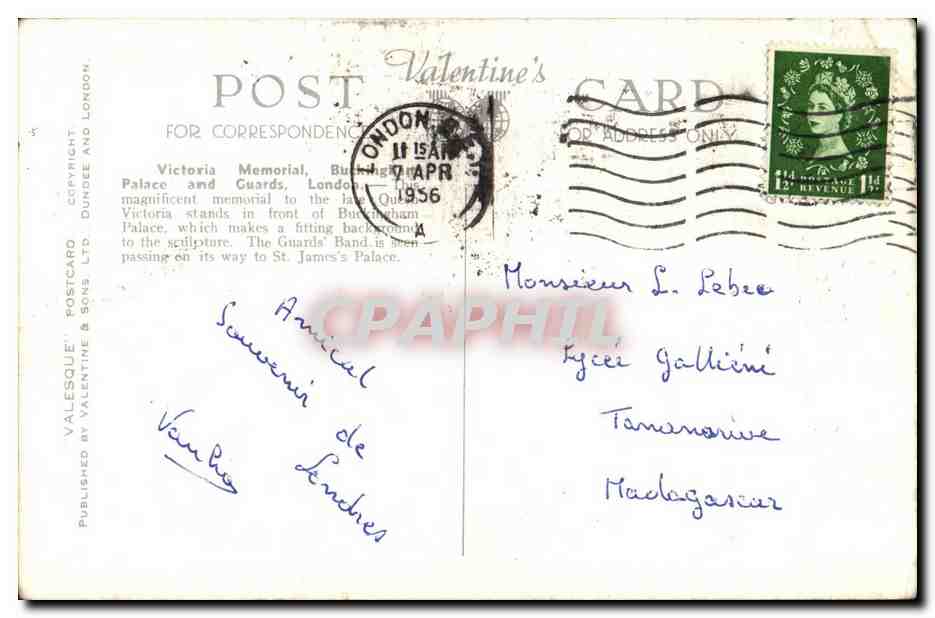 POST Valentine's CARD
FOR CORRESPONDENCE
FOR ADDRESS ONLY
LONDON
11 15 AM
7 APR
1956
A
1½D POSTAGE REVENUE 1½D
Victoria Memorial, Buckingham
Palace and Guards, London.—This
magnificent memorial to the late Queen
Victoria stands in front of Buckingham
Palace, which makes a fitting background
to the sculpture. The Guards' Band is seen
passing on its way to St. James's Palace.
"VALESQUE" POSTCARD COPYRIGHT
PUBLISHED BY VALENTINE & SONS. LTD. DUNDEE AND LONDON.
CPAPHIL
Amical
Souvenir de
Londres
Monsieur L. Lebec
Lycée Galliéni
Tananarive
Madagascar